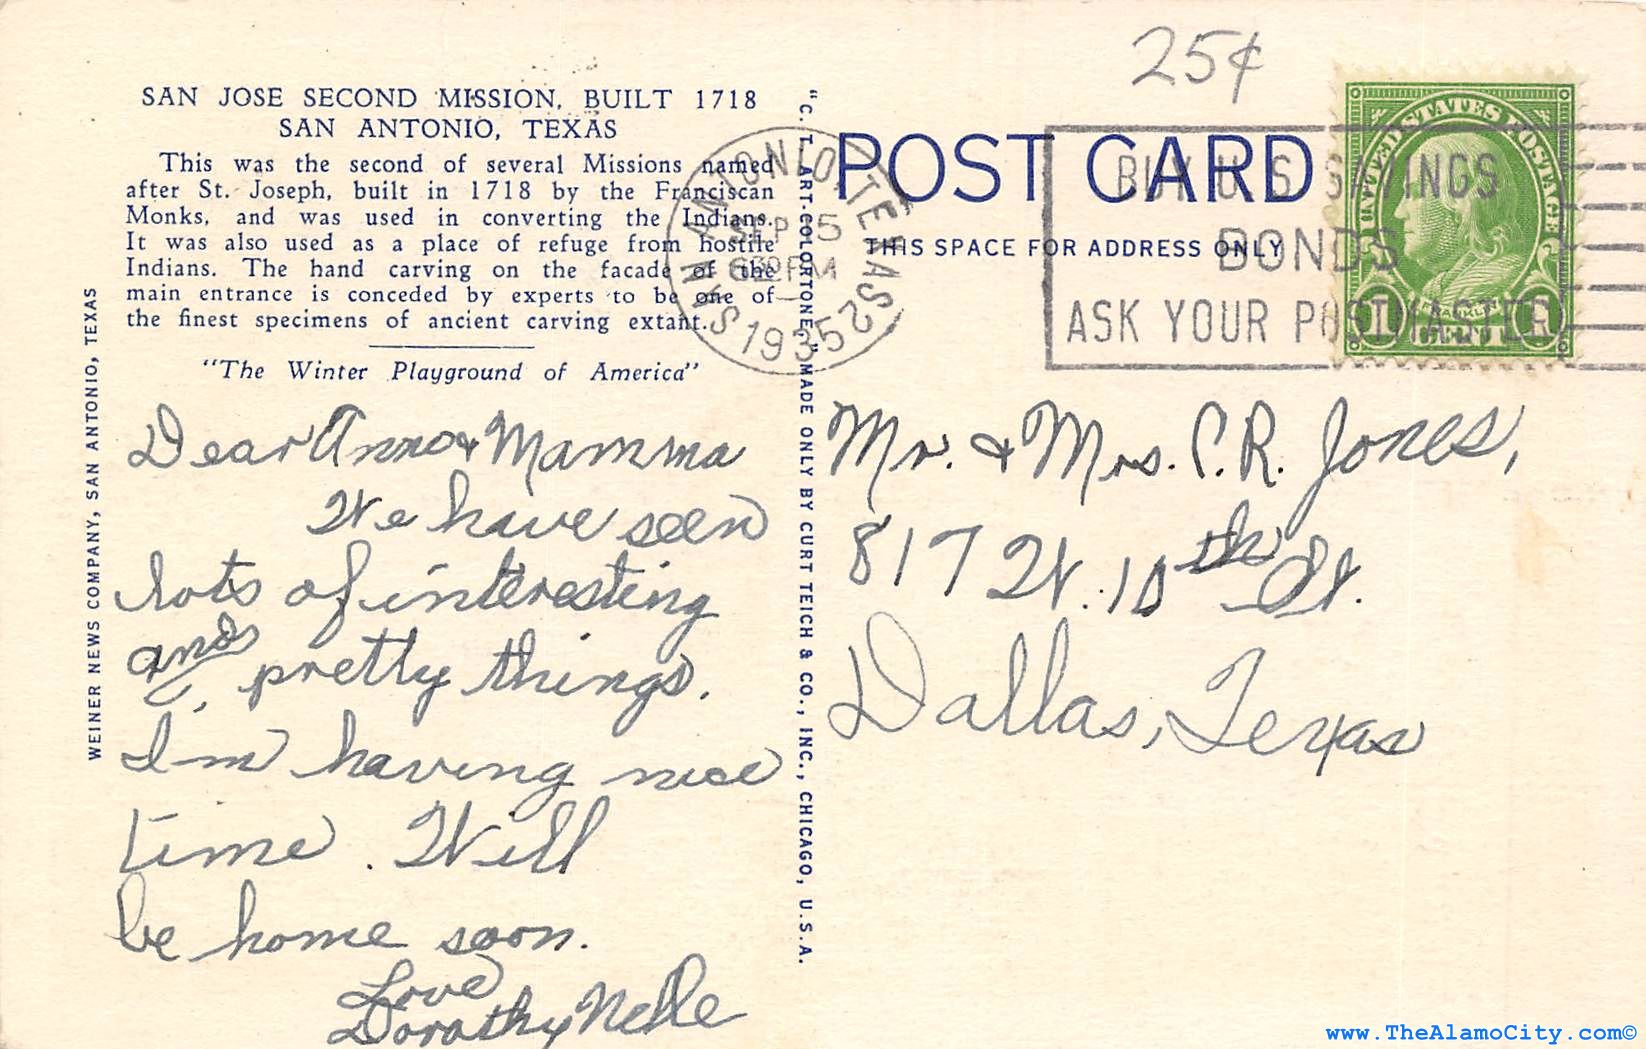 25¢
SAN JOSE SECOND MISSION, BUILT 1718
SAN ANTONIO, TEXAS
This was the second of several Missions named
after St. Joseph, built in 1718 by the Franciscan
Monks, and was used in converting the Indians.
It was also used as a place of refuge from hostile
Indians. The hand carving on the facade of the
main entrance is conceded by experts to be one of
the finest specimens of ancient carving extant.
"The Winter Playground of America"
WEINER NEWS COMPANY, SAN ANTONIO, TEXAS
Dear Anno & Mamma
We have seen
lots of interesting
and pretty things.
I'm having nice
time. Will
be home soon.
Love
Dorothy Nelle
"C. T. ART-COLORTONE" MADE ONLY BY CURT TEICH & CO., INC., CHICAGO, U.S.A.
SAN ANTONIO, TEXAS
SEP 5
6 30 PM
1935
POST CARD
THIS SPACE FOR ADDRESS ONLY
BUY U.S. SAVINGS
BONDS
ASK YOUR POSTMASTER
UNITED STATES POSTAGE
FRANKLIN
1 CENT 1
Mr. & Mrs. C. R. Jones,
817 W. 10th St.
Dallas, Texas
www.TheAlamoCity.com©